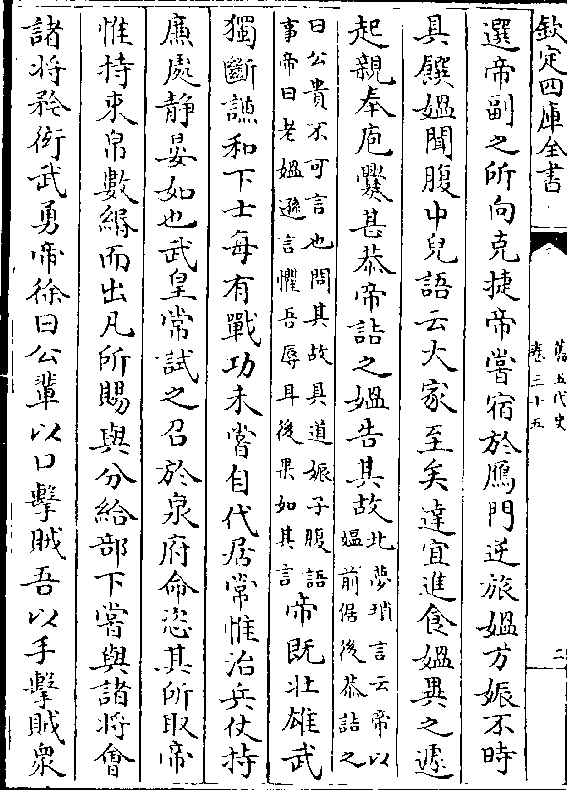 欽定四庫全書
舊五代史
卷三十五
二
選帝副之所向克捷帝嘗宿於鴈門逆旅媪方娠不時
具饌媪聞腹中兒語云大家至矣速宜進食媪異之遽
起親奉庖爨甚恭帝詰之媪告其故
北夢瑣言云帝以
媪前倨後恭詰之
曰公貴不可言也問其故具道娠子腹語
事帝曰老媪遜言懼吾辱耳後果如其言
帝既壯雄武
獨斷謙和下士每有戰功未嘗自伐居常惟治兵仗持
廉處静晏如也武皇常試之召於泉府命恣其所取帝
惟持束帛數緡而出凡所賜與分給部下嘗與諸將會
諸將矜衒武勇帝徐曰公輩以口擊賊吾以手擊賊衆